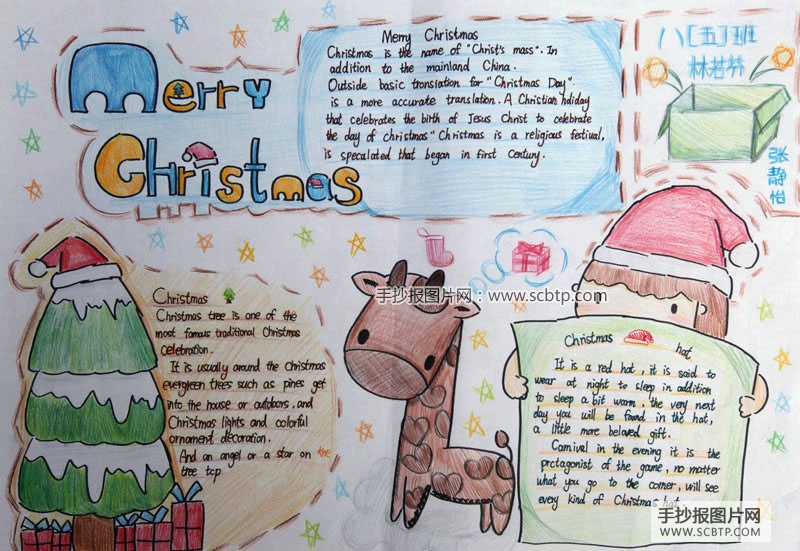 Merry
Christmas
Merry Christmas
Christmas is the name of "Christ's mass". In
addition to the mainland China.
Outside basic translation for "Christmas Day".
is a more accurate translation. A Christian hdiday
that celebrates the birth of Jesus Christ to celebrate
the day of christmas" Christmas is a religious festival,
is speculated that began in first Century.
八[五]班
张静怡
手抄报图片网:www.scbtp.com
Christmas
Christmas tree is one of the
most famous traditional Christmas
Celebration.
It is usually around the Christmas
evergreen trees such as pines get
into the house or outdoors, and
Christmas lights and colorful
ornament decoration.
And an angel or a star on the
tree top
Christmas hat
It is a red hat, it is said to
wear at night to sleep in addition
to sleep a bit warm, the very next
day you will be found in the hat,
a little more beloved gift.
Carnival in the evening it is the
protagonist of the game, no matter
what you go to the corner, will see
every kind of Christmas hat
手抄报图片网
WWW.SCBTP.COM